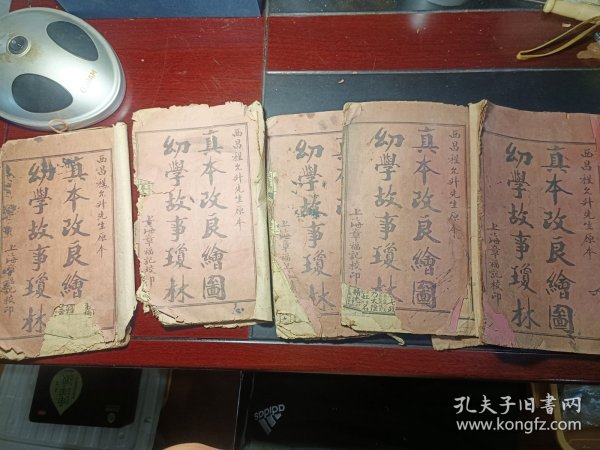 西昌程允升先生原本
真本改良繪
幼學故事瓊林
上海章福記校印
西昌程允升先生原本
真本改良繪圖
幼學故事瓊林
上海章福記校印
真本
幼學故事瓊林
上海章福記
西昌程允升先生原本
真本改良繪圖
幼學故事瓊林
西昌程允升先生原本
真本改良繪圖
幼學故事瓊林
上海章福記校印
adidas
孔夫子旧书网
www.kongfz.com